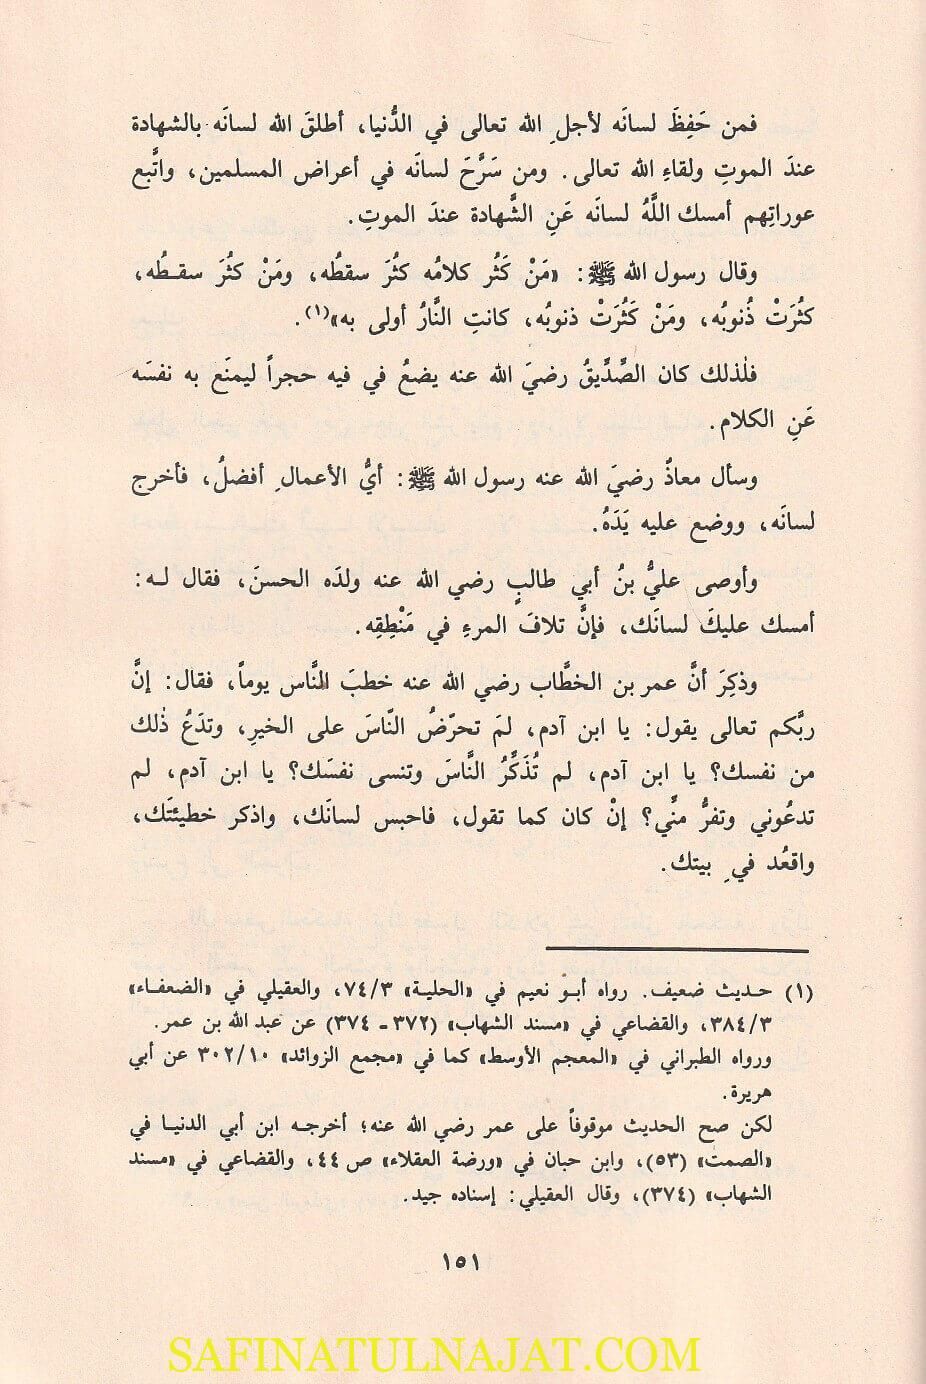 فمن حَفِظَ لسانَه لأجلِ الله تعالى في الدُّنيا، أطلقَ الله لسانَه بالشهادة
عندَ الموتِ ولقاءِ الله تعالى. ومن سَرَّحَ لسانَه في أعراض المسلمين، واتَّبع
عوراتِهم أمسك اللَّهُ لسانَه عَنِ الشَّهادة عندَ الموتِ.
وقال رسول الله ﷺ: «مَنْ كَثُر كلامُه كثُرَ سقطُه، ومَنْ كثُرَ سقطُه،
كثُرَتْ ذُنوبُه، ومَنْ كَثُرَتْ ذنوبُه، كانتِ النَّارُ أولى به»(١).
فلذلك كان الصِّدِّيقُ رضيَ الله عنه يضعُ في فيه حجراً ليمنَع به نفسَه
عَنِ الكلام.
وسأل معاذٌ رضيَ الله عنه رسول الله ﷺ: أيُّ الأعمالِ أفضلُ، فأخرج
لسانَه، ووضع عليه يَدَهُ.
وأوصى عليُّ بنُ أبي طالبٍ رضي الله عنه ولدَه الحسنَ، فقال له:
أمسك عليكَ لسانَك، فإنَّ تلافَ المرءِ في مَنْطِقِه.
وذكِرَ أنَّ عمر بن الخطَّاب رضي الله عنه خطبَ النَّاس يوماً، فقال: إنَّ
ربَّكم تعالى يقول: يا ابن آدم، لمَ تحرّضُ النّاسَ على الخيرِ، وتدَعُ ذٰلك
من نفسك؟ يا ابن آدم، لم تُذَكِّرُ النَّاسَ وتنسى نفسَك؟ يا ابن آدم، لم
تدعُوني وتفرُّ منِّي؟ إنْ كان كما تقول، فاحبس لسانَك، واذكر خطيئتَك،
واقعُد فيِ بيتك.
(١) حديث ضعيف. رواه أبو نعيم في «الحلية» ٧٤/٣، والعقيلي في «الضعفاء»
٣٨٤/٣، والقضاعي في «مسند الشهاب» (٣٧٢ - ٣٧٤) عن عبد الله بن عمر.
ورواه الطبراني في «المعجم الأوسط» كما في «مجمع الزوائد» ٣٠٢/١٠ عن أبي
هريرة.
لكن صح الحديث موقوفاً على عمر رضي الله عنه؛ أخرجه ابن أبي الدنيا في
«الصمت» (٥٣)، وابن حبان في «ورضة العقلاء» ص ٤٤، والقضاعي في «مسند
الشهاب» (٣٧٤)، وقال العقيلي: إسناده جيد.
١٥١
SAFINATULNAJAT.COM